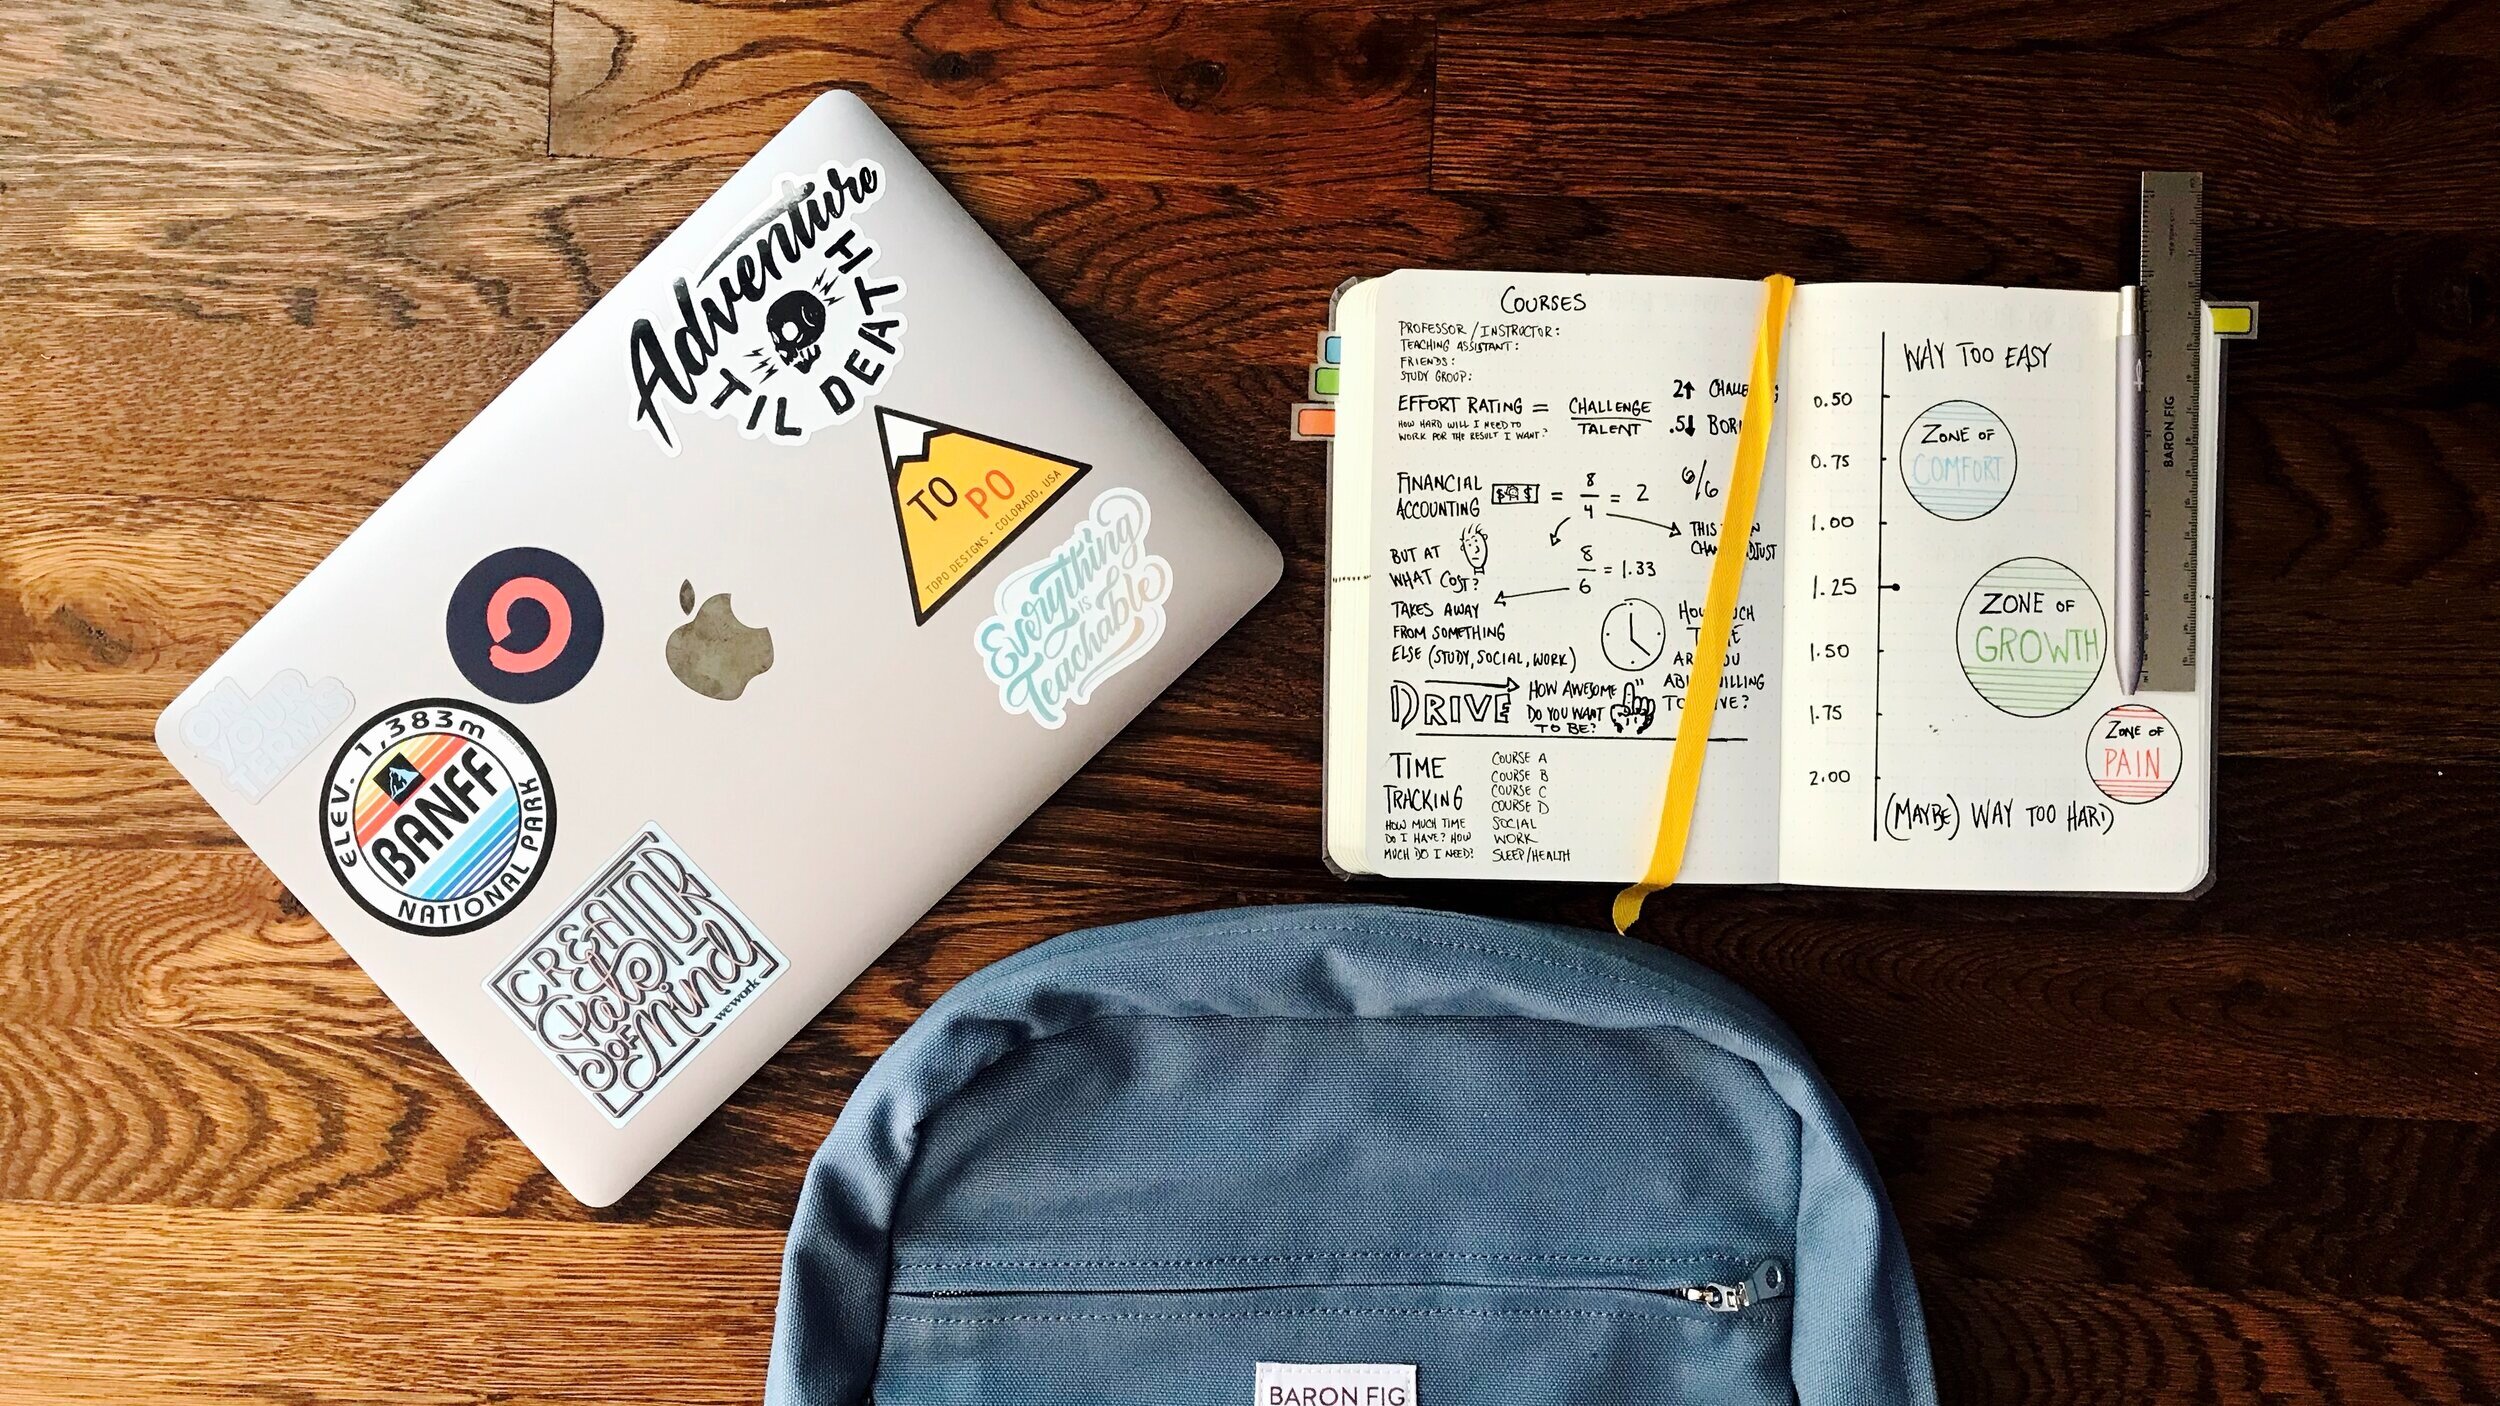 Adventure
TIL DEATH
TO
PO
TOPO DESIGNS · COLORADO, USA
Everything
IS
Teachable
ON
YOUR
TERMS
ELEV. 1,383m
BANFF
NATIONAL PARK
CREATOR
State
OF Mind
wework
COURSES
PROFESSOR / INSTRUCTOR:
TEACHING ASSISTANT:
FRIENDS:
STUDY GROUP:
EFFORT RATING = CHALLENGE
TALENT
HOW HARD WILL I NEED TO
WORK FOR THE RESULT I WANT?
2↑
.5↓
FINANCIAL
ACCOUNTING
$ $ = 8/4 = 2
6/6
THIS
8/6 = 1.33
BUT AT
WHAT COST?
TAKES AWAY
FROM SOMETHING
ELSE (STUDY, SOCIAL, WORK)
DRIVE
HOW AWESOME
DO YOU WANT
TO BE?
TIME
TRACKING
HOW MUCH TIME
DO I HAVE? HOW
MUCH DO I NEED?
COURSE A
COURSE B
COURSE C
COURSE D
SOCIAL
WORK
SLEEP/HEALTH
WAY TOO EASY
0.50
0.75
1.00
1.25
1.50
1.75
2.00
ZONE OF
COMFORT
ZONE OF
GROWTH
ZONE OF
PAIN
(MAYBE) WAY TOO HARD
BARON FIG
BARON FIG